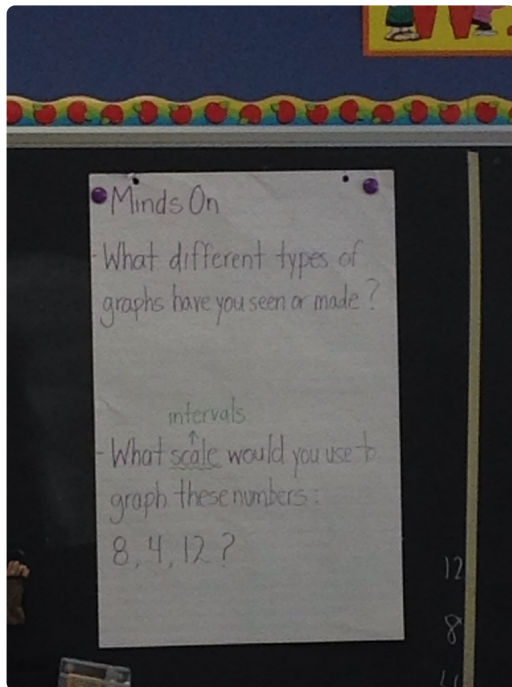 Minds On
- What different types of
graphs have you seen or made?
intervals
- What scale would you use to
graph these numbers:
8, 4, 12?
12
8
4